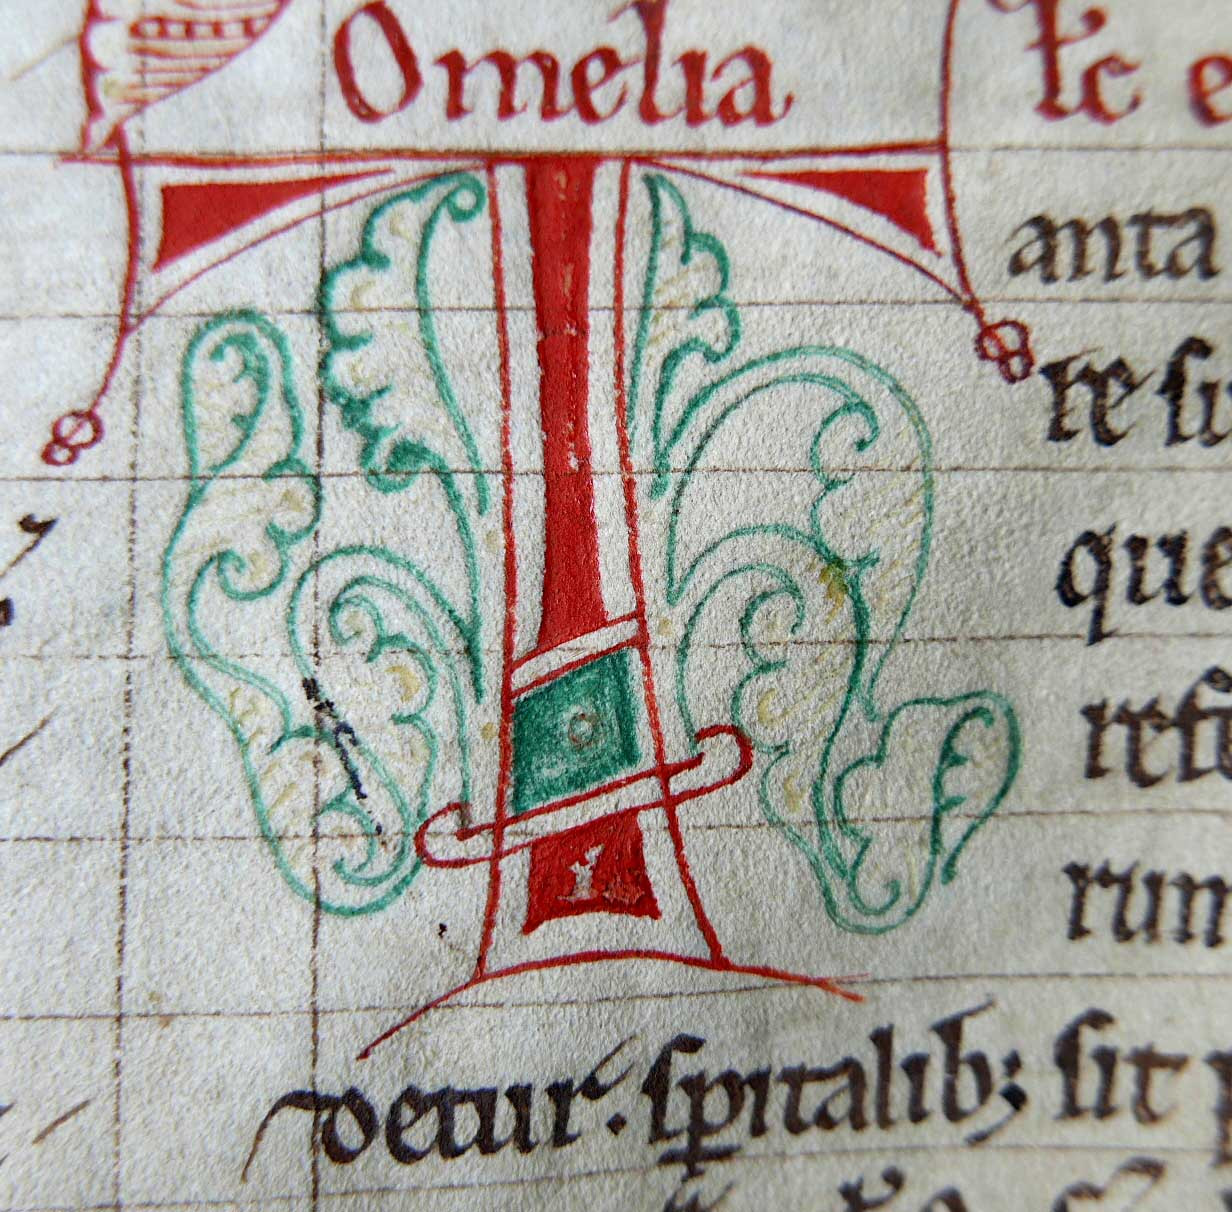 Omelia
T
anta
re si
que
rum
detur. spitalib; sit